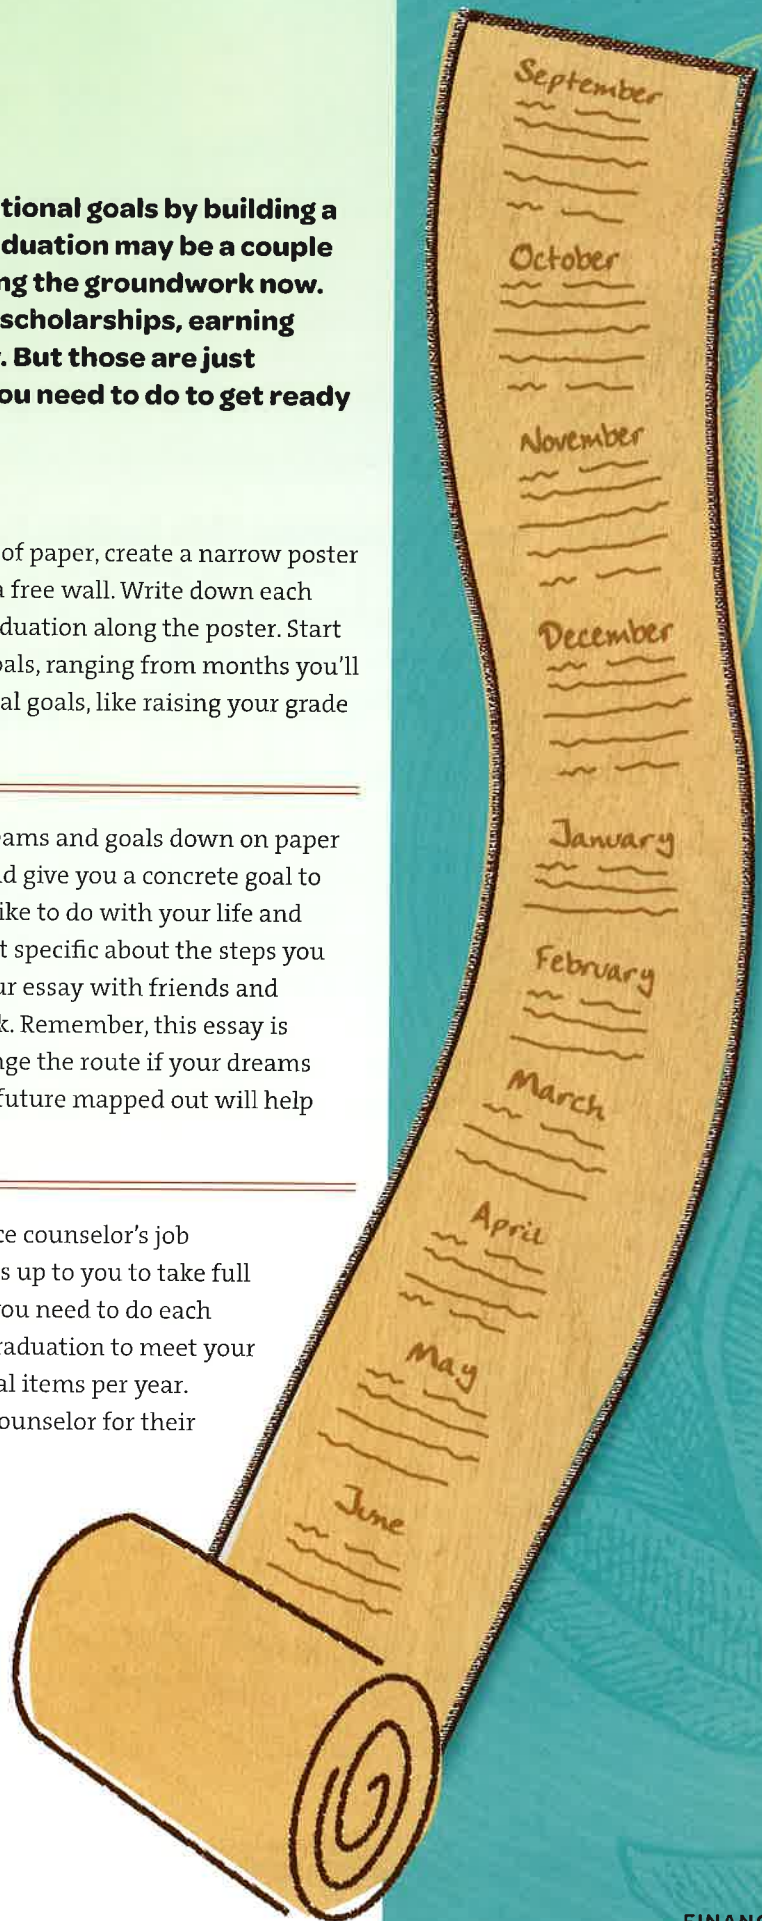 tional goals by building a
duation may be a couple
ng the groundwork now.
scholarships, earning
. But those are just
ou need to do to get ready
of paper, create a narrow poster
a free wall. Write down each
duation along the poster. Start
oals, ranging from months you'll
al goals, like raising your grade
eams and goals down on paper
d give you a concrete goal to
like to do with your life and
t specific about the steps you
ur essay with friends and
k. Remember, this essay is
nge the route if your dreams
future mapped out will help
ce counselor's job
s up to you to take full
you need to do each
raduation to meet your
al items per year.
ounselor for their
September
October
November
December
January
February
March
April
May
June
FINANC